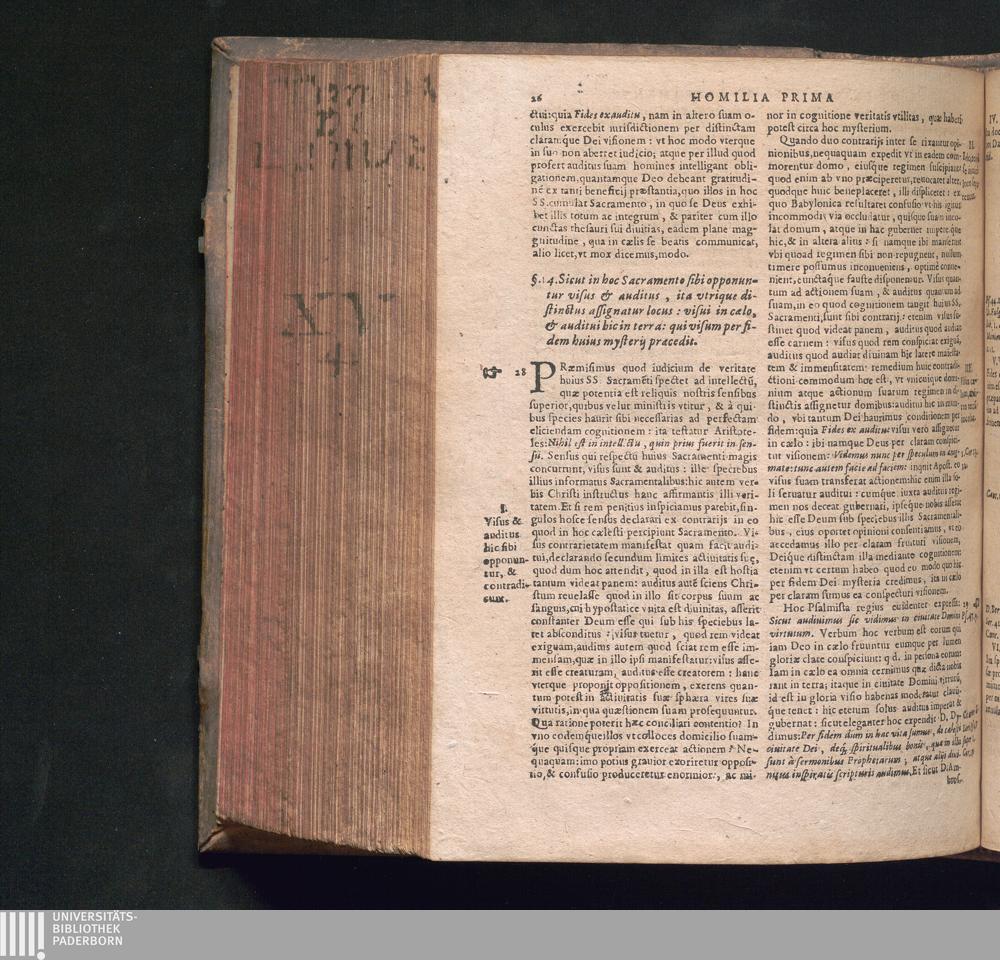 26 HOMILIA PRIMA
ctui:quia Fides ex auditu, nam in altero suam o-
culus exercebit iurisdictionem per distinctam
claramque Dei visionem: vt hoc modo vterque
in suo non aberret iudicio; atque per illud quod
profert auditus suam homines intelligant obli-
gationem, quantamque Deo debeant gratitudi-
nē ex tanti beneficij præstantia, quo illos in hoc
SS. cumulat Sacramento, in quo se Deus exhi-
bet illis totum ac integrum, & pariter cum illo
cunctas thesauri sui diuitias, eadem plane mag-
gnitudine, qua in cælis se beatis communicat,
alio licet, vt mox dicemus, modo.
§. 14. Sicut in hoc Sacramento sibi opponun-
tur visus & auditus, ita vtrique di-
stinctus assignatur locus: visui in cælo,
& auditui hic in terra: qui visum per fi-
dem huius mysterij præcedit.
28 PRæmisimus quod iudicium de veritate
huius SS. Sacramēti spectet ad intellectū,
quæ potentia est reliquis nostris sensibus
superior, quibus velut ministris vtitur, & à qui-
bus species haurit sibi necessarias ad perfectam
eliciendam cognitionem: ita testatur Aristote-
les: Nihil est in intellectu, quin prius fuerit in sen-
su. Sensus qui respectu huius Sacramenti magis
concurrunt, visus sunt & auditus: ille speciebus
illius informatus Sacramentalibus: hic autem ver-
bis Christi instructus hanc affirmantis illi veri-
tatem. Et si rem penitius inspiciamus patebit, sin-
gulos hosce sensus declarari ex contrarijs in eo
quod in hoc cælesti percipiunt Sacramento. Vi-
sus contrarietatem manifestat quam facit audi-
tui, declarando secundum limites actiuitatis suę,
quod dum hoc attendit, quod in illa est hostia
tantum videat panem: auditus autē sciens Chri-
stum reuelasse quod in illo sit corpus suum ac
sanguis, cui hypostatice vnita est diuinitas, asserit
constanter Deum esse qui sub his speciebus la-
tet absconditus: visus tuetur, quod rem videat
exiguam, auditus autem quod sciat rem esse im-
mensam, quæ in illo ipsi manifestatur: visus asse-
rit esse creaturam, auditus esse creatorem: hanc
vterque proponit oppositionem, exerens quan-
tum potest in actiuitatis suæ sphæra vires suæ
virtutis, in qua quæstionem suam prosequuntur.
Qua ratione poterit hæc conciliari contentio? In
vno eodemque illos vt colloces domicilio suam-
que quisque propriam exerceat actionem? Ne-
quaquam: imo potius grauior exoriretur opposi-
tio, & confusio produceretur enormior, ac mi-
I.
Visus &
auditus
hic sibi
opponun-
tur, &
contradi-
cunt.
nor in cognitione veritatis vtilitas, quæ haberi
potest circa hoc mysterium.
Quando duo contrarijs inter se rixantur opi-
nionibus, nequaquam expedit vt in eadem com-
morentur domo, eiusque regimen suscipiant:
quod enim ab vno præciperetur, reuocaret alter,
quodque huic beneplaceret, illi displiceret: ex
quo Babylonica resultaret confusio vt his igitur
incommodis via occludatur, quisque suam inco-
lat domum, atque in hac gubernet imperetque
hic, & in altera alius: si namque ibi manserint
vbi quoad regimen sibi non repugnent, nullum
timere possumus inconueniens, optimè conue-
nient, cunctaque fauste disponentur. Visus quan-
tum ad actionem suam, & auditus quantum ad
suam, in eo quod cognitionem tangit huius SS.
Sacramenti, sunt sibi contrarij: etenim visus su-
stinet quod videat panem, auditus quod audiat
esse carnem: visus quod rem conspiciat exiguā,
auditus quod audiat diuinam hic latere maiesta-
tem & immensitatem: remedium huic contradi-
ctioni commodum hoc est, vt vnicuique domi-
nium atque actionum suarum regimen in di-
stinctis assignetur domibus: auditui hic in mun-
do, vbi tantum Dei haurimus conditionem per
fidem: quia Fides ex auditu: visui vero assignetur
in cælo: ibi namque Deus per claram conspici-
tur visionem: Videmus nunc per speculum in ænig-
mate: tunc autem facie ad faciem: inquit Apost. eo
visus suam transferat actionem: hic enim illa so-
li seruatur auditui: cumque iuxta auditus regi-
men nos deceat gubernari, ipseque nobis asserat
hic esse Deum sub speciebus illis Sacramentali-
bus, eius oportet opinioni consentiamus, vt eo
accedamus illo per claram fruituri visionem,
Deique distinctam illa mediante cognitionem:
etenim vt certum habeo quod eo modo quo hic
per fidem Dei mysteria credimus, ita in cælo
per claram sumus ea conspecturi visionem.
Hoc Psalmista regius euidenter expressit:
Sicut audiuimus sic vidimus in ciuitate Domini
virtutum. Verbum hoc verbum est eorum qui
iam Deo in cælo fruuntur eumque per lumen
gloriæ clare conspiciunt: q d. in persona eorum:
Iam in cælo ea omnia cernimus quæ dicta nobis
erant in terra; itaque in ciuitate Domini virtutū,
id est in gloria visio habenas moderatur clauū-
que tenet: hic etenim solus auditus imperat &
gubernat: sicut eleganter hoc expendit D. Dy-
dimus: Per fidem dum in hac vita sumus, de cælesti
ciuitate Dei, deq́, spiritualibus bonis, quæ in illa
sunt à sermonibus Prophetarum, atque alijs diui-
nitus inspiratis scripturis audimus. Et sicut D. Am-
bros.
II.
III.
29
XV
4
UNIVERSITÄTS-
BIBLIOTHEK
PADERBORN